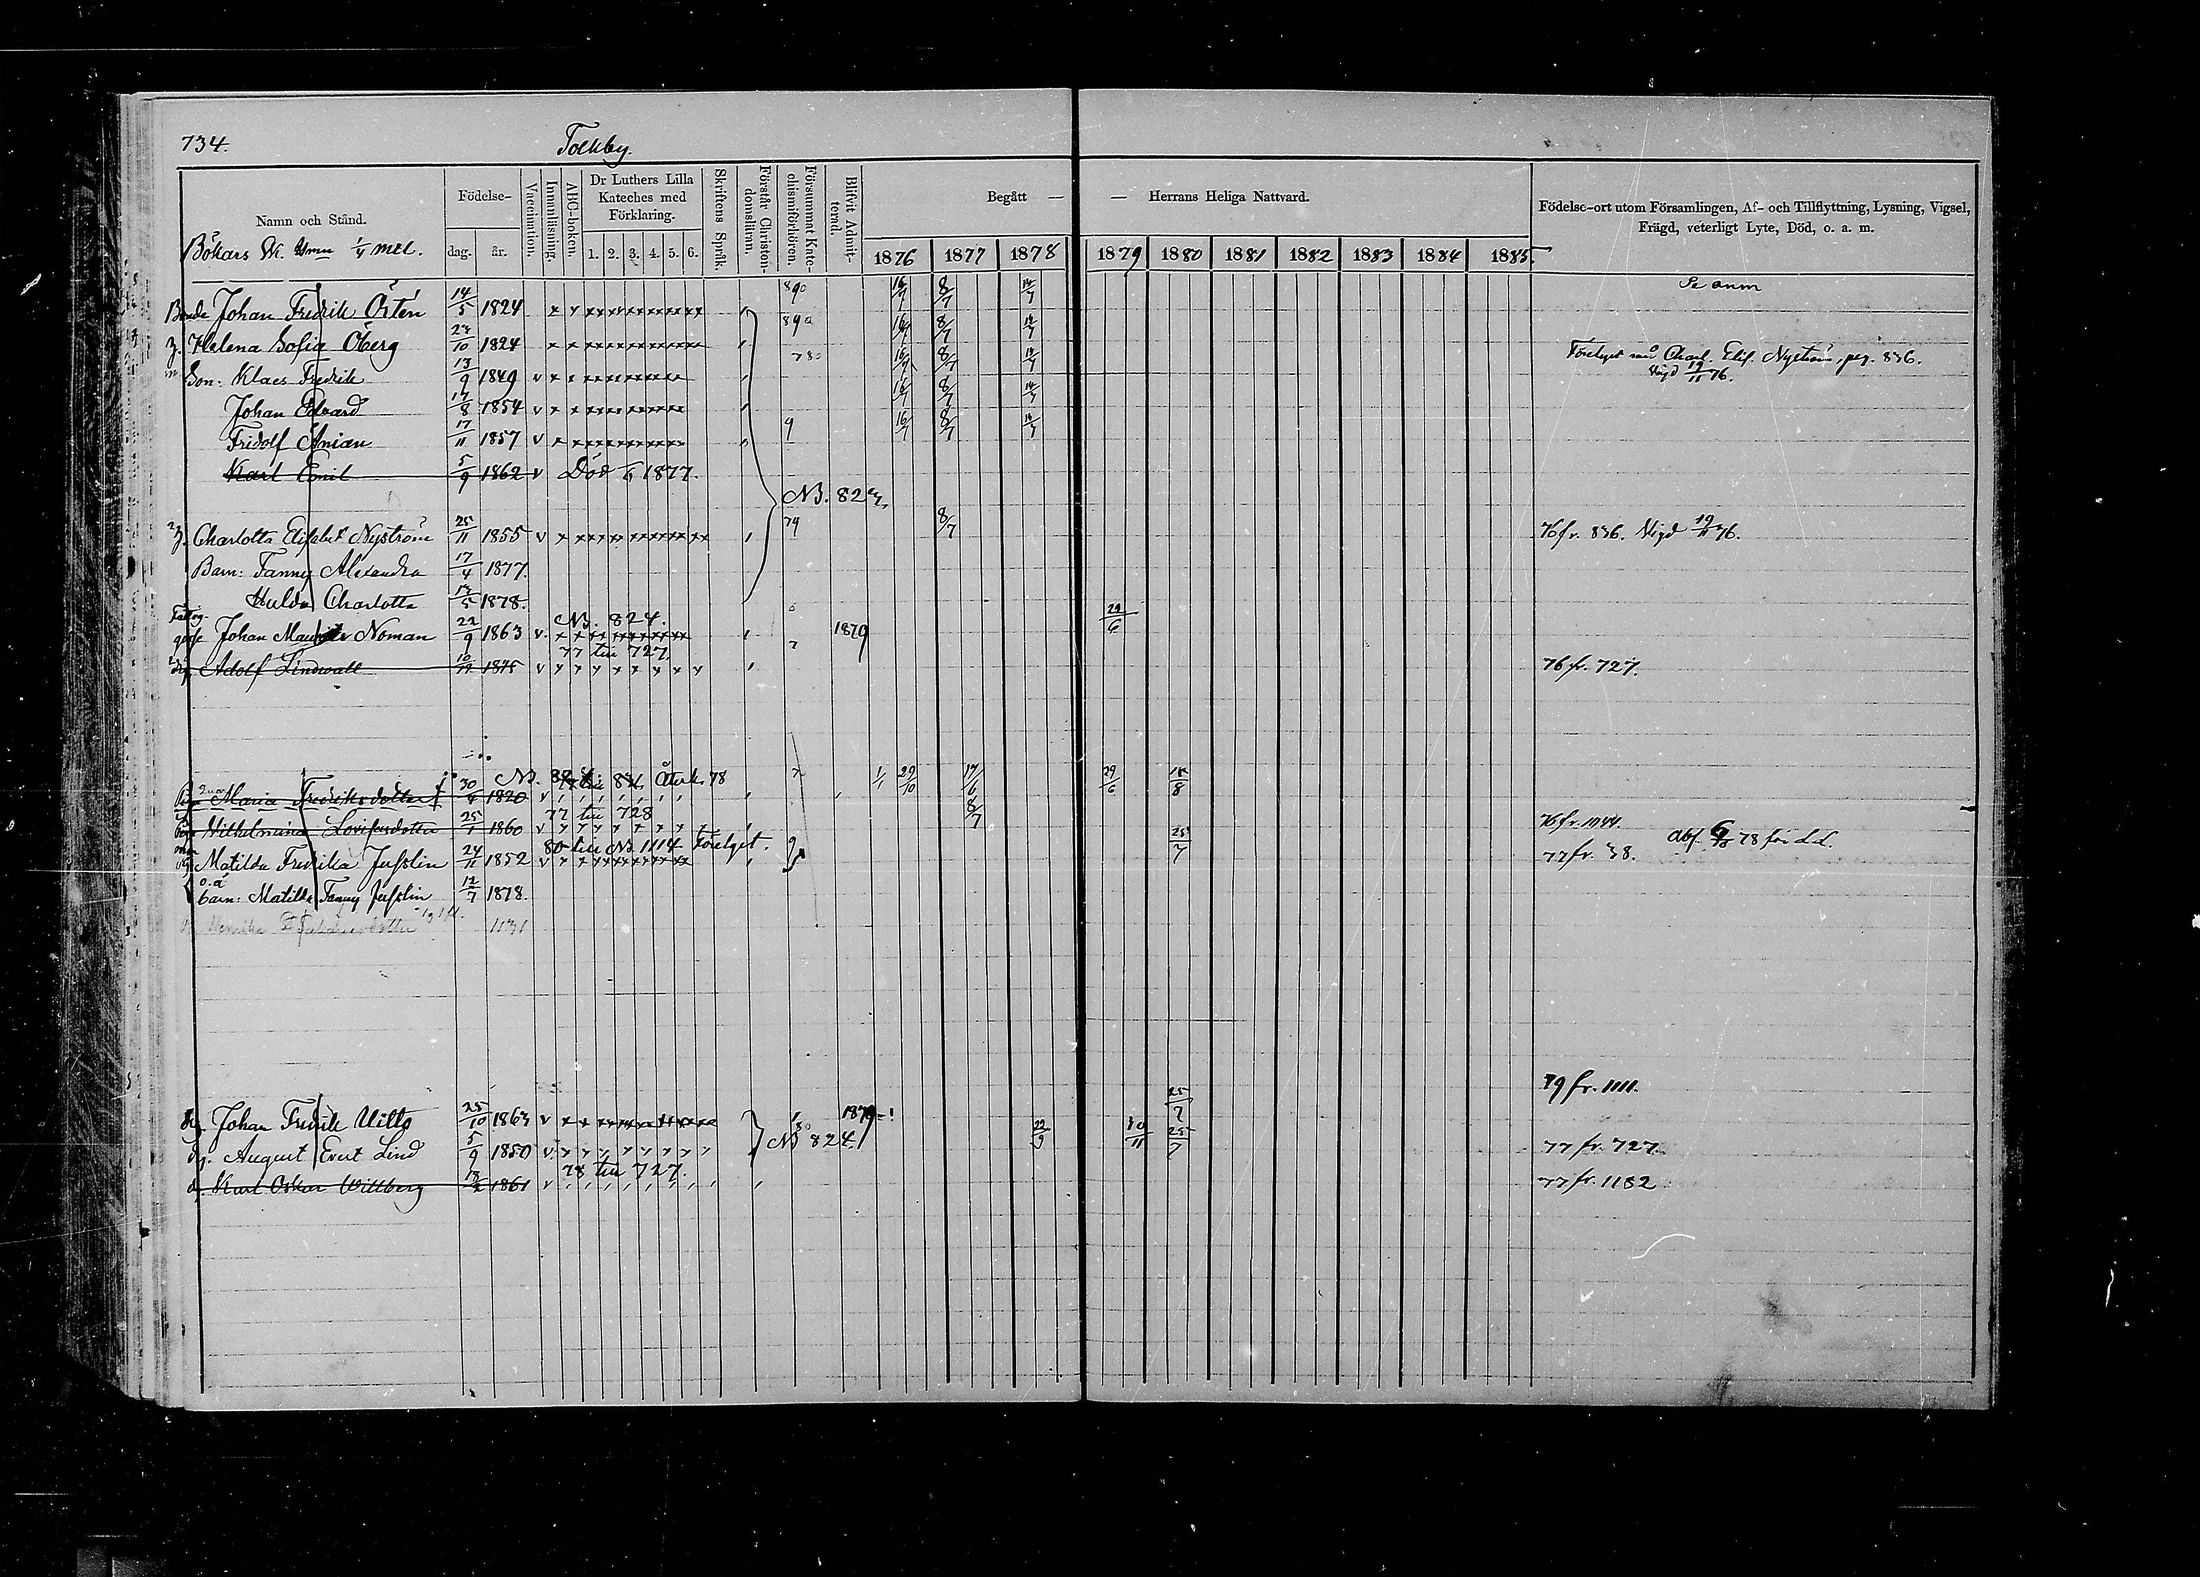 734.
Tolkby.
Namn och Stånd.
Födelse-
dag.
år.
Vaccination.
Innanläsning.
ABC-boken.
Dr Luthers Lilla
Kateches med
Förklaring.
1. 2. 3. 4. 5. 6.
Skriftens Språk.
Förstår Christen-
domsläran.
Försummat Kate-
chismiförhören.
Blifvit Admit-
terad.
Begått —
— Herrans Heliga Nattvard.
1876 1877 1878 1879 1880 1881 1882 1883 1884 1885.
Födelse-ort utom Församlingen, Af- och Tillflyttning, Lysning, Vigsel,
Frägd, veterligt Lyte, Död, o. a. m.
Bökars 1/4 mtl.
Se anm
Bonde Johan Fredrik Östén 14/5 1824 890 16/7 8/7 14/7
Helena Sofia Öberg 23/10 1824 890 16/7 8/7 14/7
Son: Klaes Fredrik 13/9 1849 v 780 16/7 8/7 14/7 Förelyst med Charl. Elis. Nyström, pag. 836.
Vigd 19/11 76.
Johan Edvard 17/8 1854 v 16/7 8/7 14/7
Fridolf Anian 17/11 1857 v 9 16/7 8/7 14/7
Karl Emil 5/9 1862 v Död 1/6 1877.
NB. 823
Charlotta Elisabet Nyström 25/11 1855 v 79 8/7 76 fr. 836. Vigd 19/11 76.
Barn: Fanny Alexandra 17/4 1877.
Hulda Charlotta 13/5 1878.
NB. 824.
Johan Noman 22/9 1863 v. 1879 29/6
77 till 727.
Adolf Lindwall 10/12 1845 v 76 fr. 727.
Återk. 78
Maria Fredriksdotter 30/4 1820 v 1/1 29/10 17/6 29/6 15/8
77 till 728
Vilhelmina Lovisasdotter 25/1 1860 v 8/7 76 fr. 1044.
80 till NB. 1114 förelyst.
Matilda Fredrika Jusslin 24/11 1852 v 9 25/7 77 fr. 38. Abs. 6/10 78 för l.l.
o.ä
barn: Matilda Fanny Jusslin 12/7 1878.
79 fr. 1111.
Johan Fredrik Uills 25/10 1863 v 1879 25/7
NB 824.
August Evert Lind 5/9 1850 v. 22/9 30/11 25/7 77 fr. 727.
78 till 727.
Karl Oskar Willberg 13/2 1861 v 77 fr. 1182